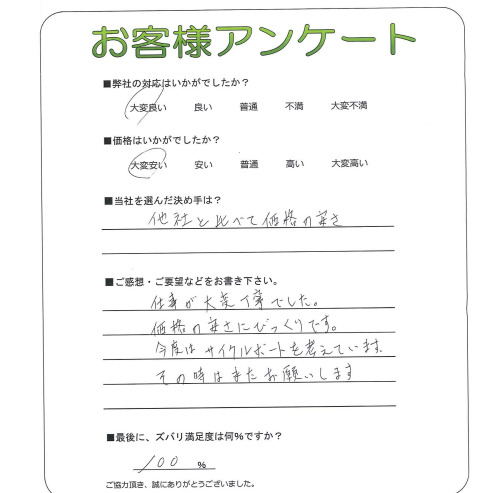 お客様アンケート
■弊社の対応はいかがでしたか？
大変良い 良い 普通 不満 大変不満
■価格はいかがでしたか？
大変安い 安い 普通 高い 大変高い
■当社を選んだ決め手は？
他社と比べて価格の安さ
■ご感想・ご要望などをお書き下さい。
仕事が大変丁寧でした。
価格の安さにびっくりです。
今度はサイクルポートを考えています。
その時はまたお願いします
■最後に、ズバリ満足度は何％ですか？
100 ％
ご協力頂き、誠にありがとうございました。